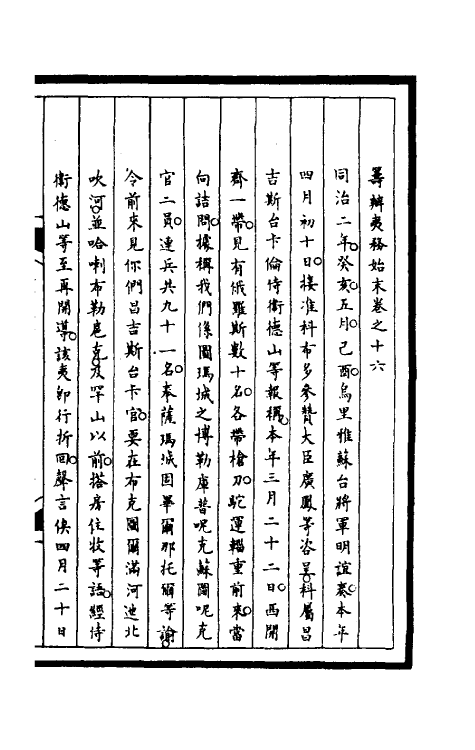 籌辦夷務始末卷之十六
同治二年癸亥五月己酉烏里雅蘇台將軍明誼奏本年
四月初十日接准科布多參贊大臣廣鳳等咨呈科屬昌
吉斯台卡倫侍衛德山等報稱本年三月二十二日西開
齊一帶見有俄羅斯數十名各帶槍刀駝運輜重前來當
向詰問據稱我們係圖瑪城之博勒庫普呢克蘇圖呢克
官二員連兵共九十一名奉薩瑪城固畢爾那托爾等諭
令前來見你們昌吉斯台卡官要在布克圖爾滿河迤北
吹河並哈喇布勒扈克及罕山以前搭房住牧等語經侍
衛德山等至再開導該夷卽行折回聲言俟四月二十日